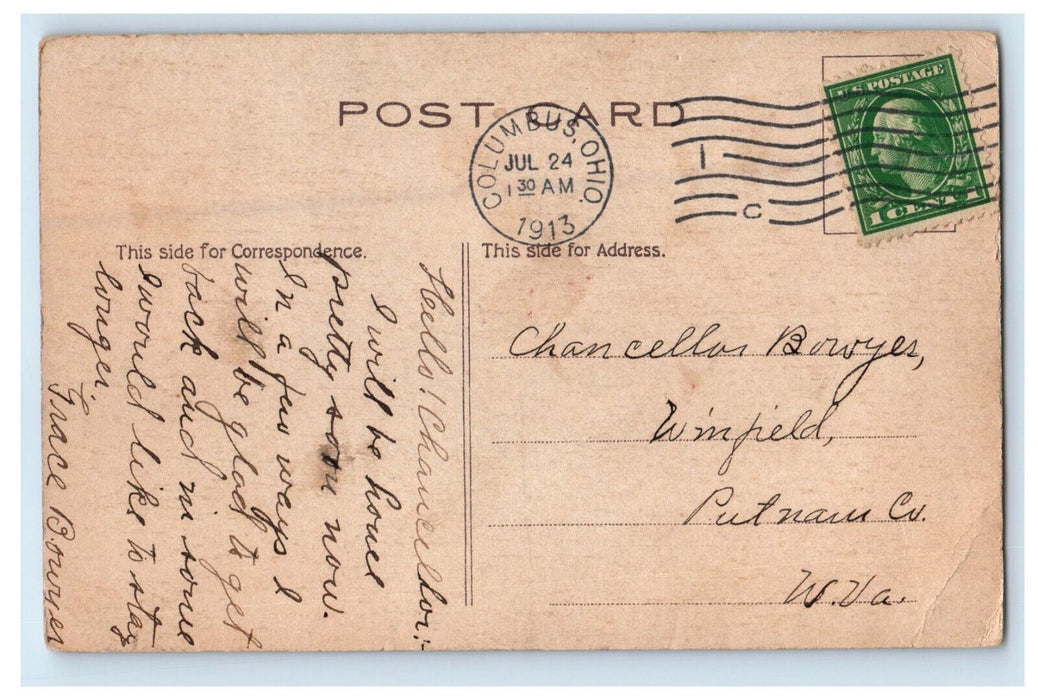 POST CARD
COLUMBUS, OHIO.
JUL 24
1 30 AM
1913
1
C
U.S. POSTAGE
1 CENT 1
This side for Correspondence.
This side for Address.
Hello! Chancellor:-
I will be home
pretty soon now.
In a few ways I
will be glad to get
back and in some
I would like to stay
longer.
Grace Bowyer
Chancellor Bowyer,
Winfield,
Putnam Co.
W. Va.